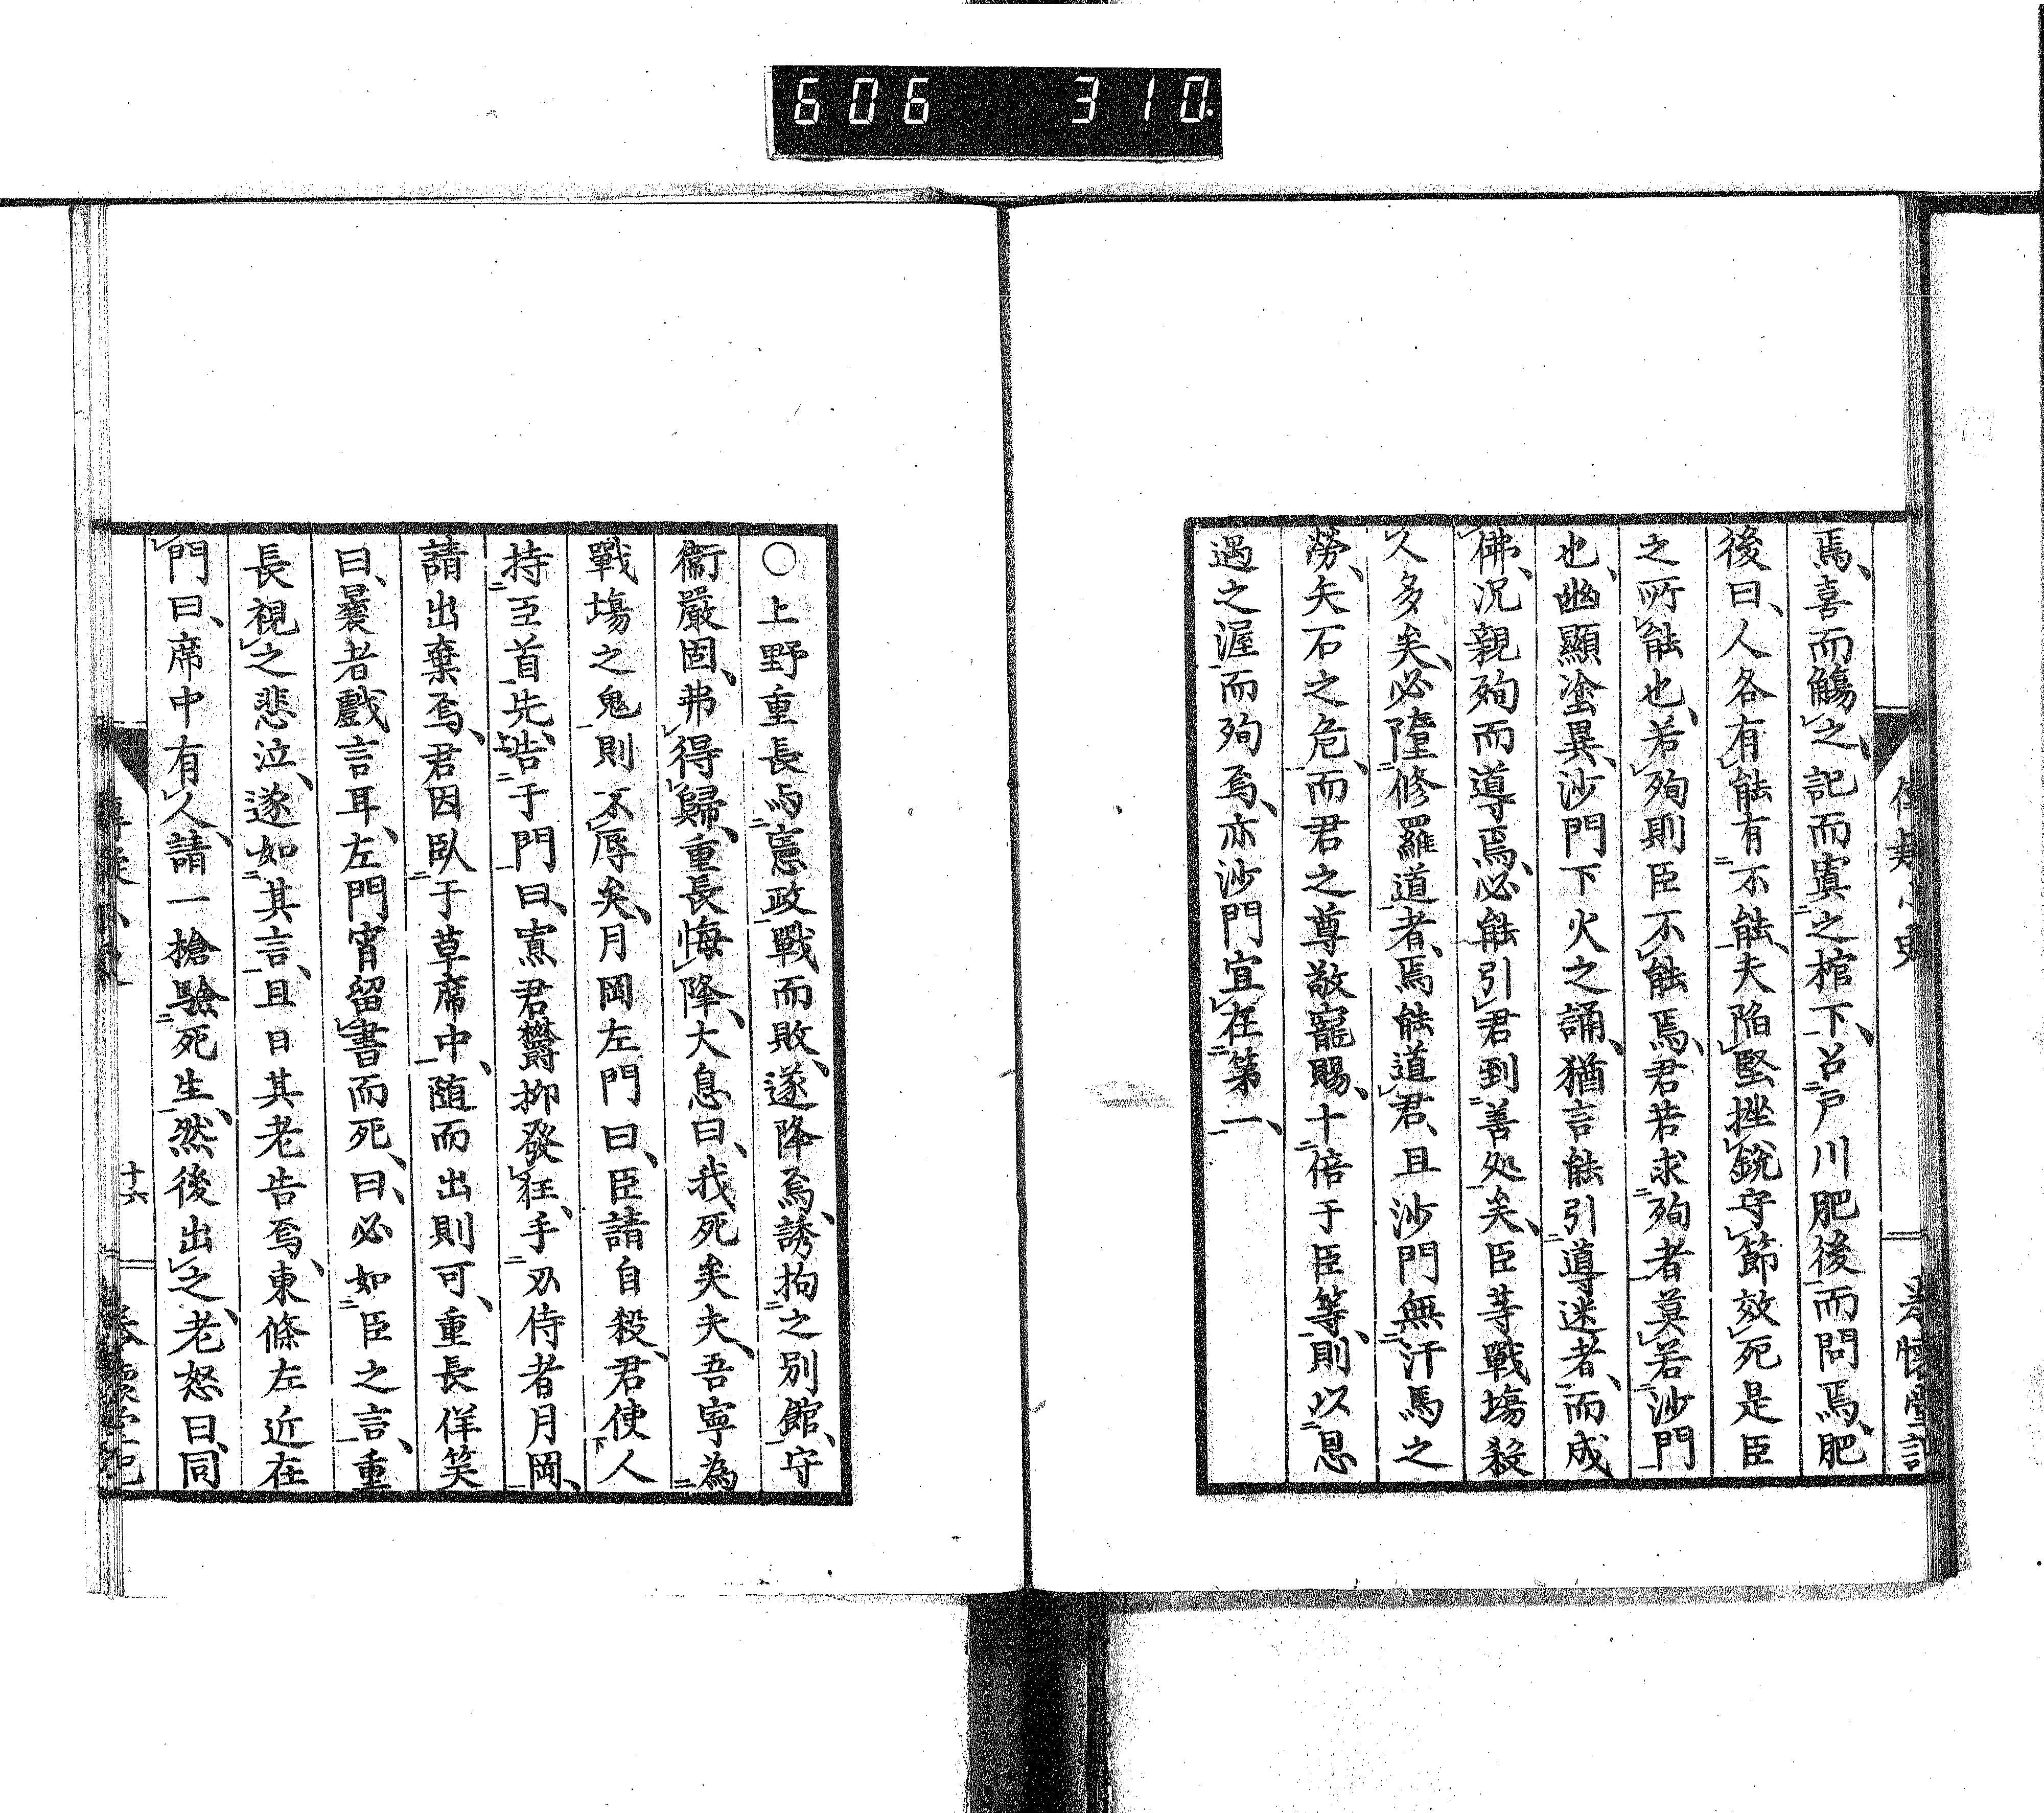 606 310
焉、喜而觴之、記而寘之棺下、召戸川肥後而問焉、肥
後曰、人各有能有不能、夫陥堅挫鋭守節效死是臣
之所能也、若殉則臣不能焉、君若求殉者莫若沙門
也、幽顯塗異、沙門下火之誦、猶言能引導迷者、而成
佛、况親殉而導焉、必能引君到善処矣、臣等戰場殺
人多矣、必墮修羅道者、焉能道君、且沙門無汗馬之
勞、矢石之危、而君之尊敬寵賜、十倍于臣等、則以恩
遇之渥而殉焉、亦沙門宜在第一、
〇上野重長与憲政戰而敗、遂降焉、誘拘之別館、守
衞嚴固、弗得歸、重長悔降、大息曰、我死矣夫、吾寧為
戰場之鬼則不辱矣、月岡左門曰、臣請自殺、君使人
持臣首先告于門曰、寡君欝抑發狂、手刃侍者月岡、
請出棄焉、君因臥于草席中、随而出則可、重長佯笑
曰、曩者戲言耳、左門宵留書而死、曰、必如臣之言、重
長視之悲泣、遂如其言、且日其老告焉、東條左近在
門曰、席中有人、請一搶驗死生、然後出之、老怒曰、同
十六